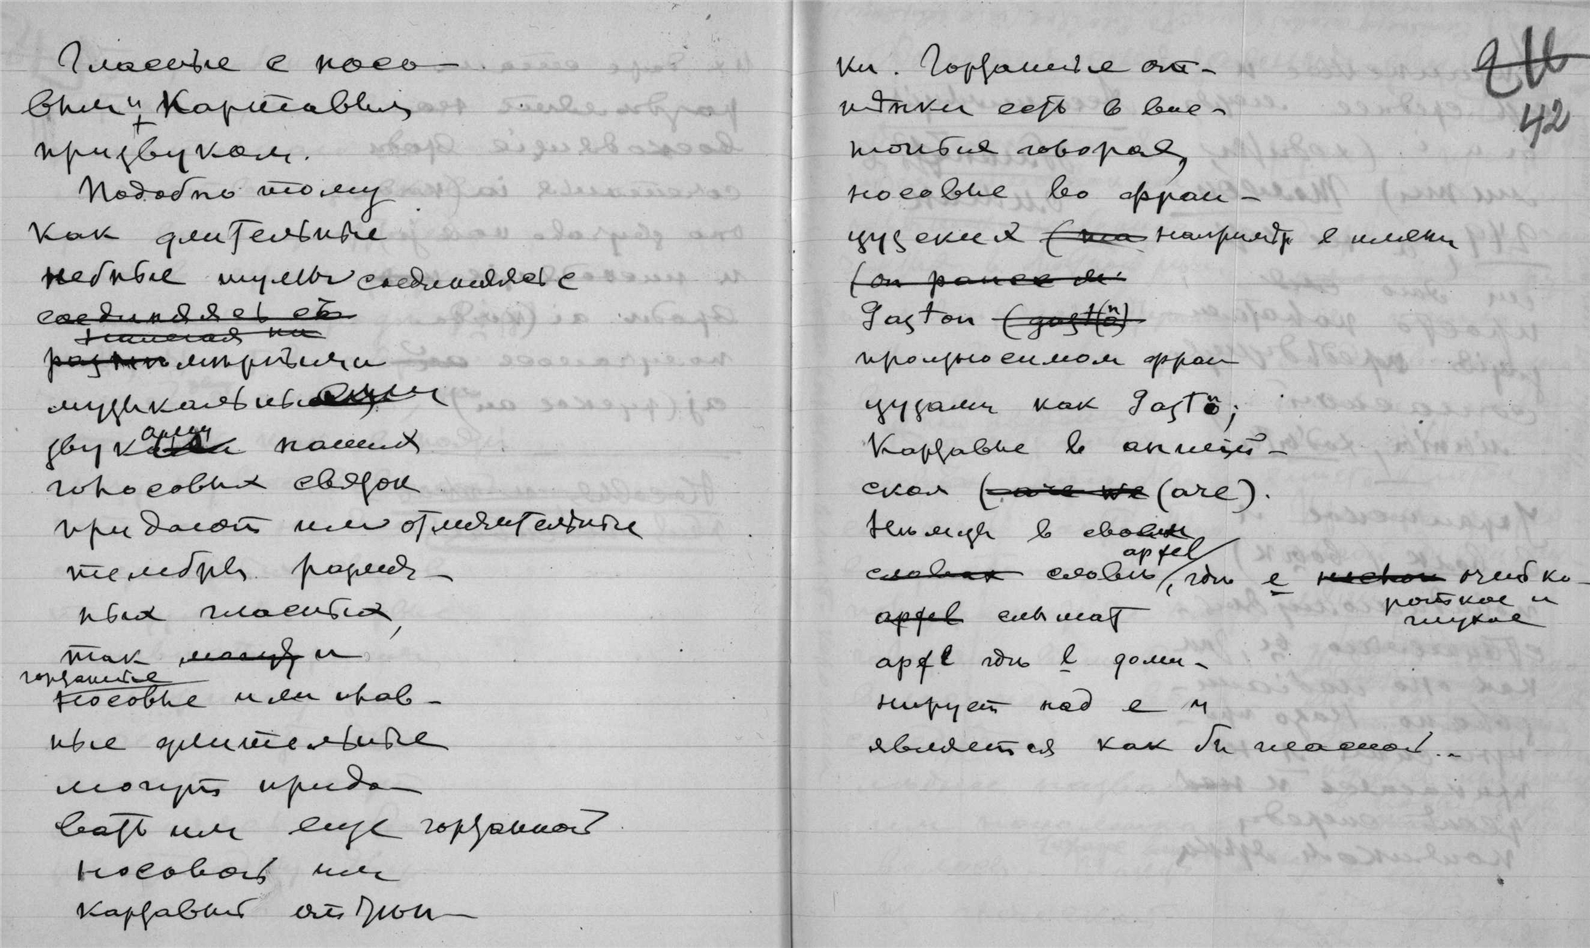 Гласные с носо-
вым и Картавым
призвуком.
Подобно тому
как длительные
небные шумы соединяясь с
соединяясь съ
разн мирными
музыкальными
звуками наших
голосовых связок
придают им отличительные
тембры различ-
ных гласных,
так могут и
гортанные
носовые или прав-
ные длительные
могут прида-
вать им еще гортанной
носовой или
картавый оттен-
ки. Гортанные от-
тѣнки есть в вос-
точных говорах,
носовые во фран-
цузских (на например в имени
Gaston (gast(o)
произносимом фран
цузами как Gasto;
Картавые в англий-
ском (are we (are).
Немцы в своем
apfel
словах словъ, гдѣ e очень ко-
роткое и
глухое
apfel слышат
apfl гдѣ l доми-
нирует над e и
является как бы гласной. -
211
42